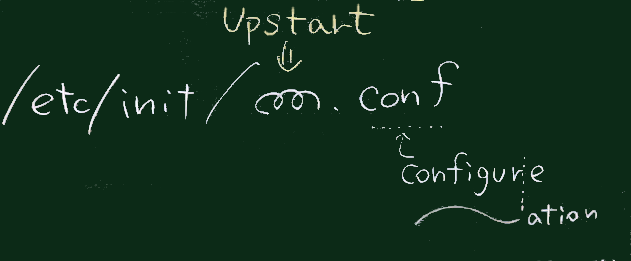 Upstart
/etc/init/ . conf
configure
ation